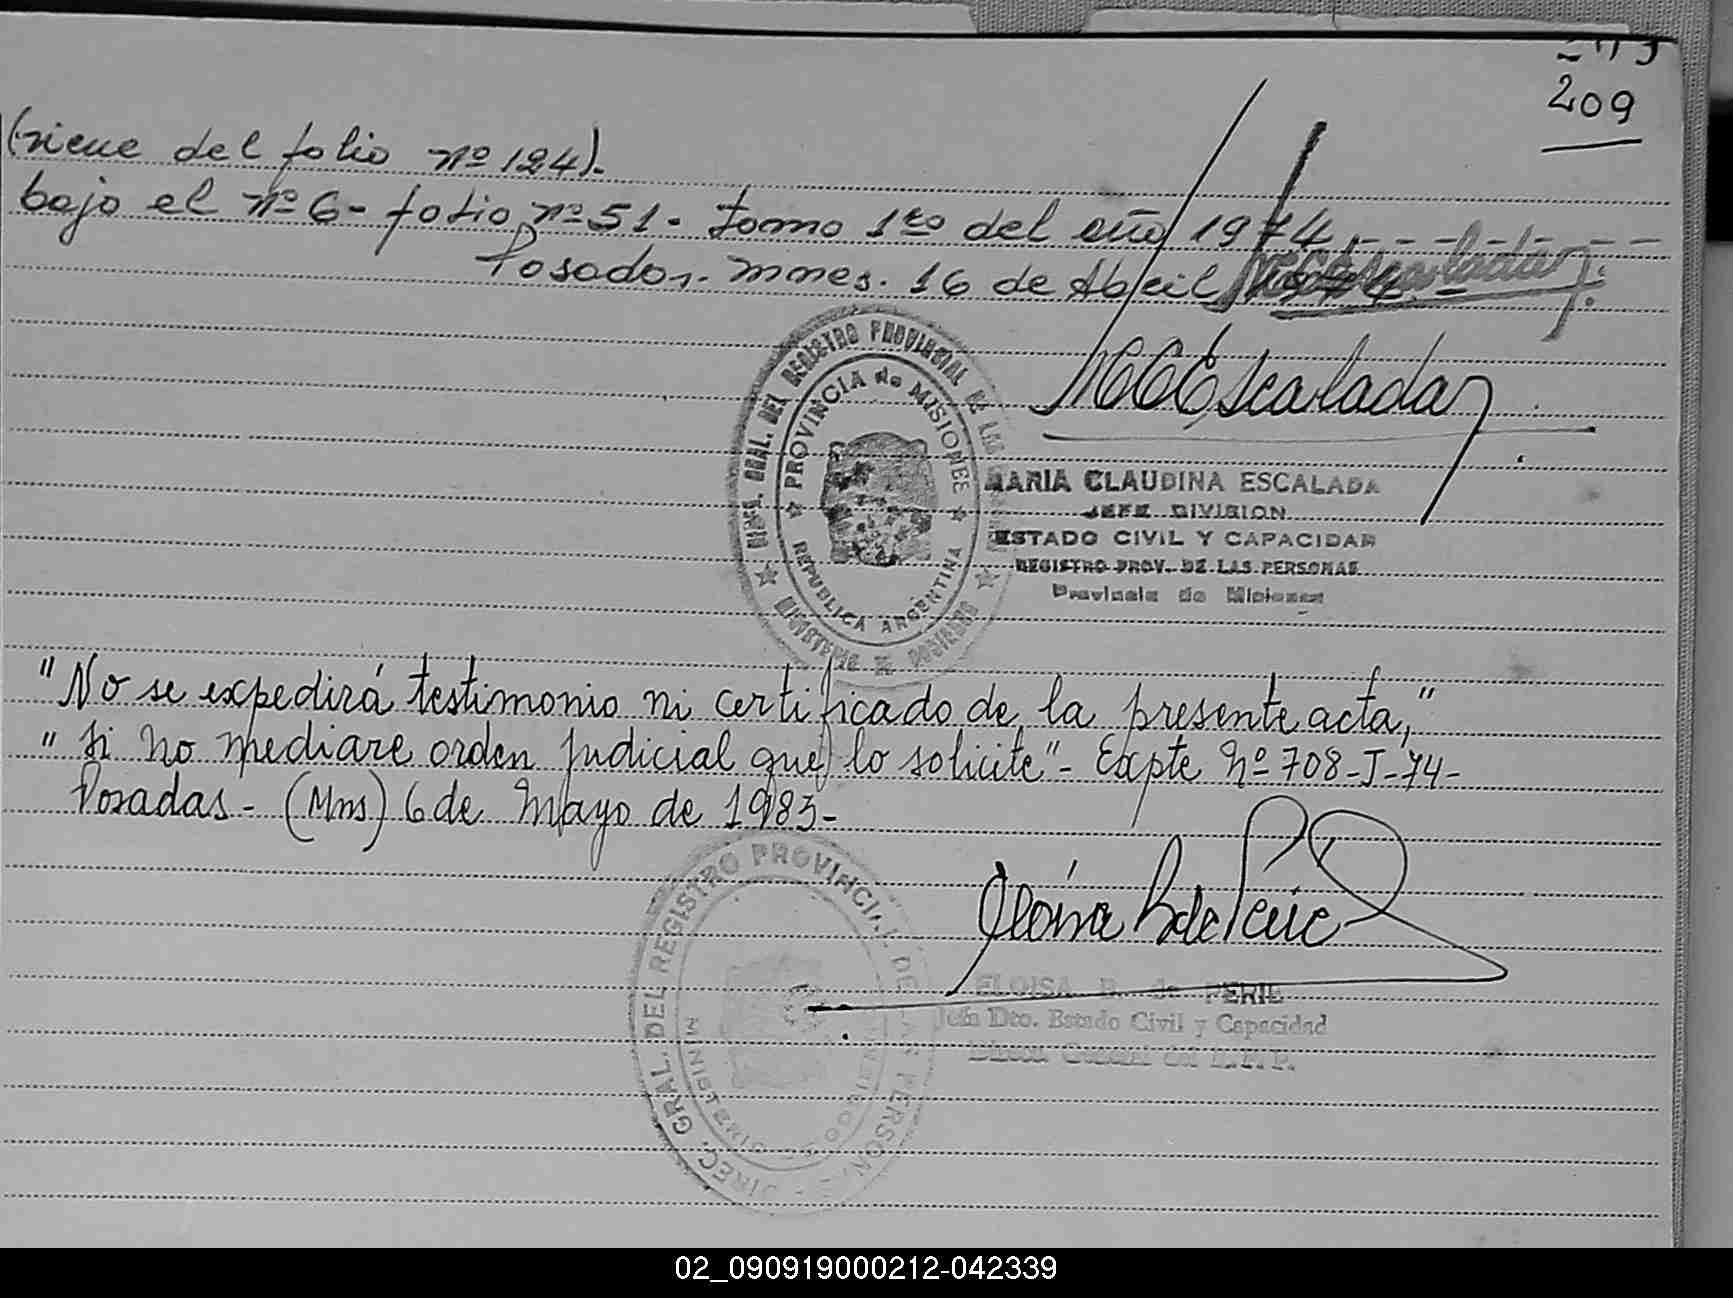 209
(viene del folio nº 124).
bajo el nº 6- folio nº 51- tomo 1ro del año 1974.
Posadas. Mnes. 16 de Abril
MCEscalada
DIREC. GRAL. DEL REGISTRO PROVINCIAL DE LAS
PROVINCIA de MISIONES
REPUBLICA ARGENTINA
MINISTERIO DE GOBIERNO
MARIA CLAUDINA ESCALADA
JEFE DIVISION
ESTADO CIVIL Y CAPACIDAD
REGISTRO PROV. DE LAS PERSONAS
Provincia de Misiones
"No se expedirá testimonio ni certificado de la presente acta,"
"si no mediare orden judicial que lo solicite"- Expte Nº 708-J-74-
Posadas- (Mns) 6 de Mayo de 1983-
Eloisa B de Peric
DIREC. GRAL. DEL REGISTRO PROVINCIAL DE LAS PERSON
MINISTERIO DE GOBIERNO
ELOISA B. de PERIE
Jefa Dto. Estado Civil y Capacidad
02_090919000212-042339